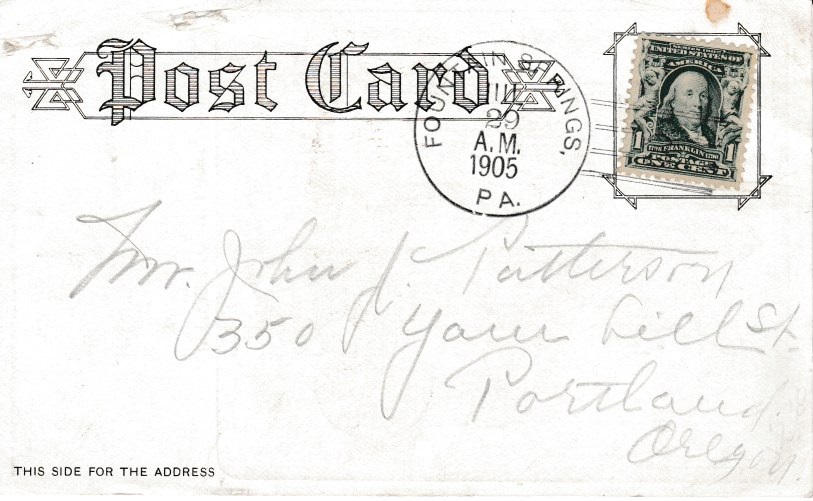 Post Card
FOUNTAIN SPRINGS,
JUL
29
A.M.
1905
PA.
SERIES 1902
UNITED STATES OF
AMERICA
1706 FRANKLIN 1790
1 POSTAGE 1
ONE CENT
Mr. John J. Patterson
350 Yamhill St.
Portland.
Oregon.
THIS SIDE FOR THE ADDRESS